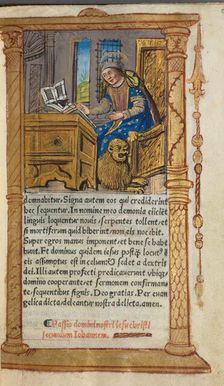 demnabitur. Signa autem eos qui crediderint
hec sequentur. In nomine meo demonia eiicient
linguis loquentur nouis serpentes tollent: et
si mortiferum quid biberint non eis nocebit.
Super egros manus imponent: et bene se habe
bunt. Et dominus quidem iesus postq̃ locut᷒
eis assumptus est in celum: sedet a dextris
dei. Illi autem profecti predicauerunt vbiq̃
domino cooperante: et sermonem confirmante
sequentibus signis. Deo gratias. Per euan
gelica dicta deleantur nostra delicta. amen.
Passio domini nostri Iesu christi
secundum Iohannem.